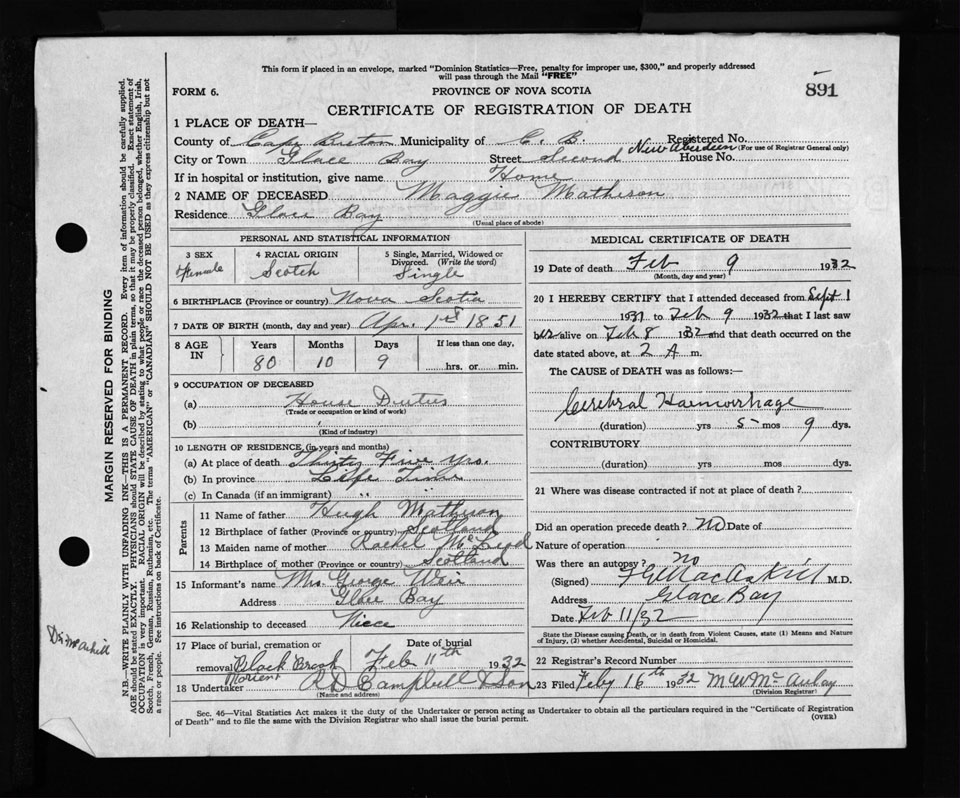 This form if placed in an envelope, marked "Dominion Statistics—Free, penalty for improper use, $300," and properly addressed
will pass through the Mail "FREE"
FORM 6. PROVINCE OF NOVA SCOTIA 891
CERTIFICATE OF REGISTRATION OF DEATH
1 PLACE OF DEATH—
County of Cape Breton Municipality of C. B. Registered No.
New Aberdeen (For use of Registrar General only)
City or Town Glace Bay Street Second House No.
If in hospital or institution, give name Home
2 NAME OF DECEASED Maggie Matheson
Residence Glace Bay
(Usual place of abode)
PERSONAL AND STATISTICAL INFORMATION
3 SEX 4 RACIAL ORIGIN 5 Single, Married, Widowed or
Divorced. (Write the word)
Female Scotch Single
6 BIRTHPLACE (Province or country) Nova Scotia
7 DATE OF BIRTH (month, day and year) Apr. 1st 1851
8 AGE IN Years Months Days If less than one day,
80 10 9 hrs. or min.
9 OCCUPATION OF DECEASED
(a) House Duties
(Trade or occupation or kind of work)
(b)
(Kind of industry)
10 LENGTH OF RESIDENCE (in years and months)
(a) At place of death Thirty Five yrs.
(b) In province Life Time
(c) In Canada (if an immigrant) " "
Parents
11 Name of father Hugh Matheson
12 Birthplace of father (Province or country) Scotland
13 Maiden name of mother Rachel McLeod
14 Birthplace of mother (Province or country) Scotland
15 Informant's name Mrs. George Weir
Address Glace Bay
16 Relationship to deceased Niece
17 Place of burial, cremation or removal Date of burial
Black Brook Feb 11th 1932
Morien
18 Undertaker R D Campbell & Son
(Name and address)
MEDICAL CERTIFICATE OF DEATH
19 Date of death Feb 9 1932
(Month, day and year)
20 I HEREBY CERTIFY that I attended deceased from Sept 1
1931 to Feb 9 1932 that I last saw
her alive on Feb 8 1932 and that death occurred on the
date stated above, at 2 A m.
The CAUSE of DEATH was as follows:—
Cerebral Haemorrhage
(duration) yrs 5 mos 9 dys.
CONTRIBUTORY
(duration) yrs mos dys.
21 Where was disease contracted if not at place of death?
Did an operation precede death? No Date of
Nature of operation
Was there an autopsy? no
(Signed) F G MacAskill M.D.
Address Glace Bay
Date Feb 11/32
State the Disease causing Death, or in death from Violent Causes, state (1) Means and Nature
of Injury, (2) whether Accidental, Suicidal or Homicidal.
22 Registrar's Record Number
23 Filed Feby 16th 1932 M W McAulay
(Division Registrar)
Sec. 46—Vital Statistics Act makes it the duty of the Undertaker or person acting as Undertaker to obtain all the particulars required in the "Certificate of Registration
of Death" and to file the same with the Division Registrar who shall issue the burial permit. (OVER)
MARGIN RESERVED FOR BINDING
N.B.—WRITE PLAINLY WITH UNFADING INK—THIS IS A PERMANENT RECORD. Every item of information should be carefully supplied.
AGE should be stated EXACTLY. PHYSICIANS should STATE CAUSE OF DEATH in plain terms, so that it may be properly classified. Exact statement of
OCCUPATION is very important. RACIAL ORIGIN will be described by stating to what people or race the deceased person belonged, whether English, Irish,
Scotch, French, German, Russian, Ruthenian, etc. The terms "AMERICAN" or "CANADIAN" SHOULD NOT BE USED as they express citizenship but not
a race or people. See instructions on back of Certificate.
Dr. McAskill